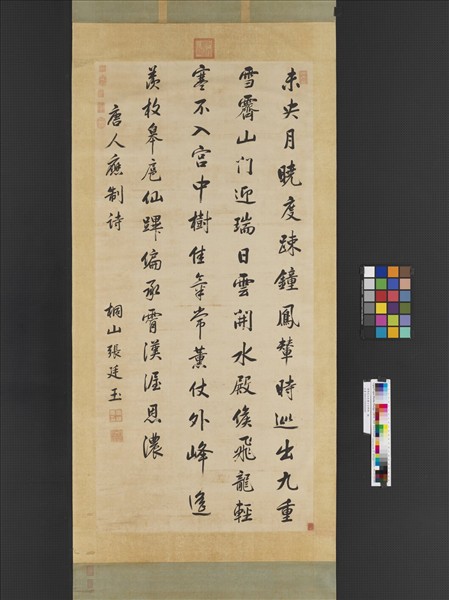 未央月曉度踈鐘鳳輦時巡出九重
雪霽山门迎瑞日雲開水殿候飛龍輕
寒不入宮中樹佳氣常薰仗外峰遙
羨枚皋扈仙蹕偏承霄漢渥恩濃
唐人應制诗
桐山張廷玉